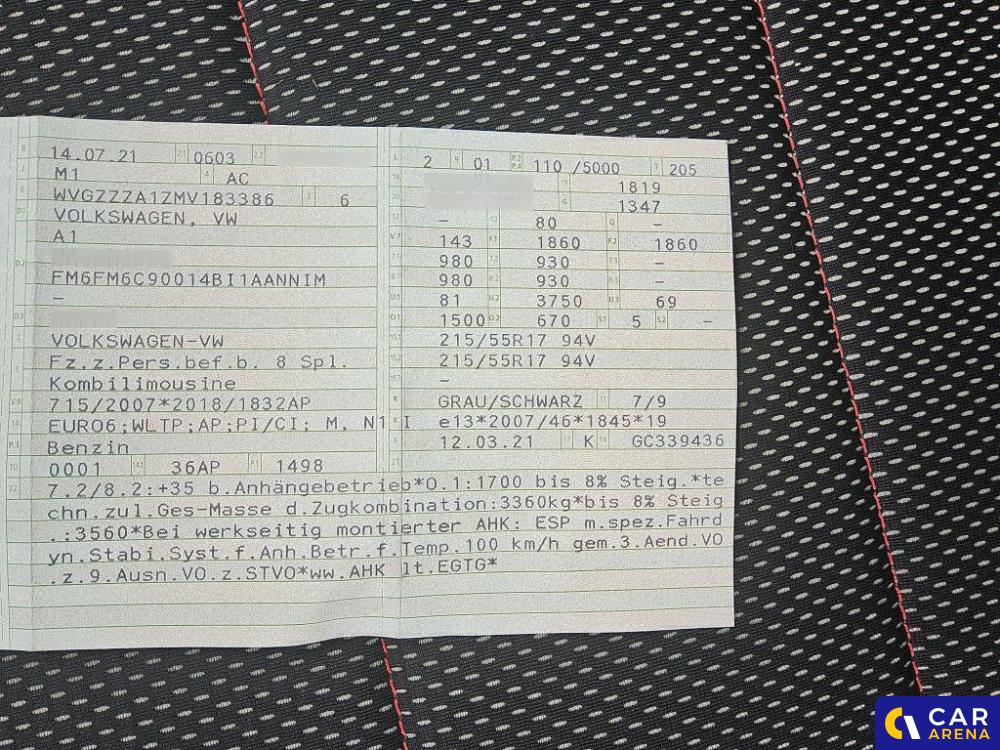 B 14.07.21 2.1 0603 2.2
J M1 4 AC
E WVGZZZA1ZMV183386 3 6
D.1 VOLKSWAGEN, VW
A1
D.2
FM6FM6C90014BI1AANNIM
–
D.3
2 VOLKSWAGEN-VW
5 Fz.z.Pers.bef.b. 8 Spl.
Kombilimousine
V.9 715/2007*2018/1832AP
14 EURO6;WLTP;AP;PI/CI; M, N1 I
P.3 Benzin
10 0001 14.1 36AP P.1 1498
L 2 9 01 P.2 P.4 110 /5000 T 205
18 19 1819
20 G 1347
12 – 13 80 Q –
V.7 143 F.1 1860 F.2 1860
7.1 980 7.2 930 7.3 –
8.1 980 8.2 930 8.3 –
U.1 81 U.2 3750 U.3 69
O.1 1500 O.2 670 S.1 5 S.2 –
215/55R17 94V
215/55R17 94V
–
R GRAU/SCHWARZ 11 7/9
K e13*2007/46*1845*19
6 12.03.21 17 K 16 GC339436
21
22 7.2/8.2:+35 b.Anhängebetrieb*O.1:1700 bis 8% Steig.*te
chn.zul.Ges-Masse d.Zugkombination:3360kg*bis 8% Steig
.:3560*Bei werkseitig montierter AHK: ESP m.spez.Fahrd
yn.Stabi.Syst.f.Anh.Betr.f.Temp.100 km/h gem.3.Aend.VO
.z.9.Ausn.VO.z.STVO*ww.AHK lt.EGTG*
CAR
ARENA